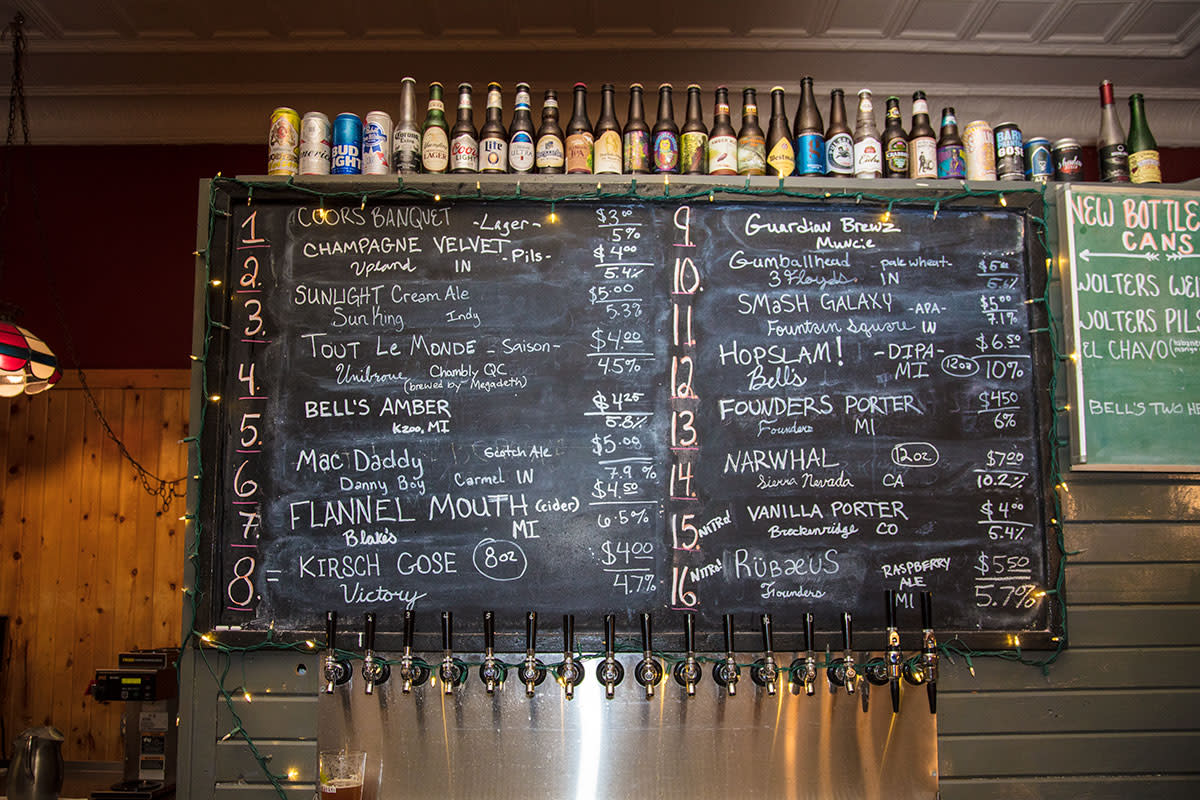 1 COORS BANQUET -Lager- $3.00
5%
2. CHAMPAGNE VELVET -Pils- $4.00
Upland IN 5.4%
3. SUNLIGHT Cream Ale $5.00
Sun King Indy 5.3%
4. TOUT LE MONDE -Saison- $4.00
Unibroue Chambly QC 4.5%
(brewed by Megadeth)
5. BELL'S AMBER $4.25
Kzoo, MI 5.8%
6. MAC DADDY Scotch Ale $5.00
Danny Boy Carmel IN 7.9%
7. FLANNEL MOUTH (cider) $4.50
Blake's MI 6.5%
8. = KIRSCH GOSE 8oz $4.00
Victory 4.7%
9. Guardian Brewz
Muncie
10. Gumballhead pale wheat-
3 Floyds IN
11. SMaSH GALAXY -APA- $5.00
Fountain Square IN 7.1%
12. HOPSLAM! -DIPA- 12oz $6.50
Bells MI 10%
13. FOUNDERS PORTER $4.50
Founders MI 6%
14. NARWHAL 12oz $7.00
Sierra Nevada CA 10.2%
15. NITRO! VANILLA PORTER $4.00
Breckenridge CO 5.4%
16. NITRO! RÜBÆUS RASPBERRY ALE $5.50
Founders MI 5.7%
NEW BOTTLE
CANS
WOLTERS WEI
WOLTERS PILS
EL CHAVO
BELL'S TWO HE
BUD
LIGHT
Corona
LAGER
Coors
LIGHT
Lite
ULTRA
IPA
GOSE